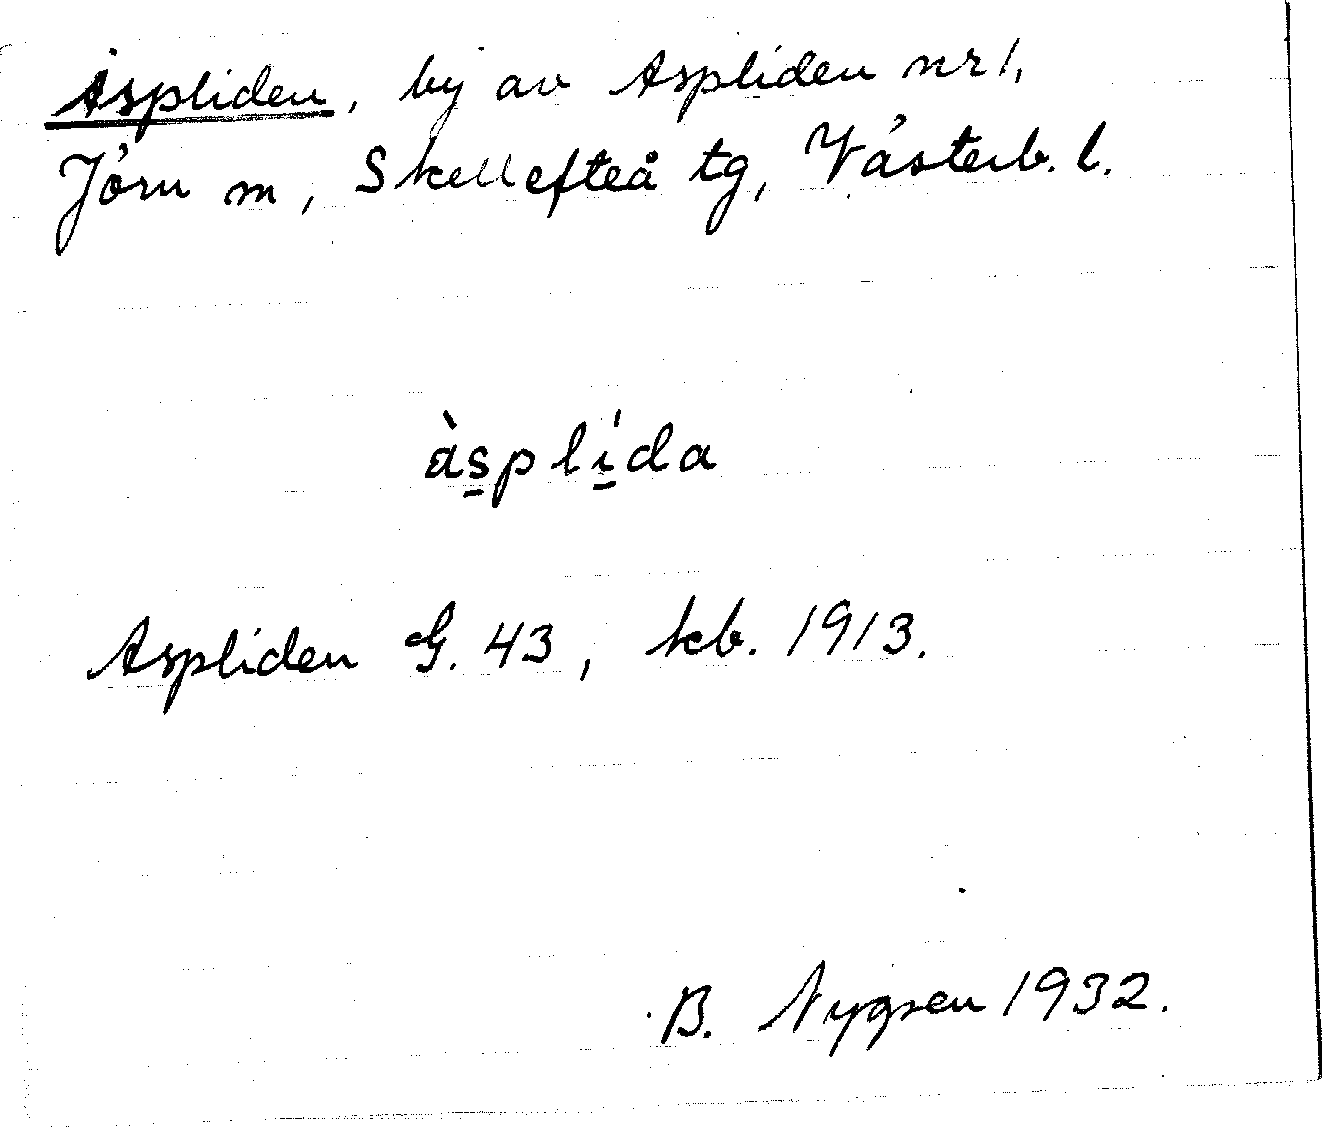 Aspliden, by av Aspliden nr 1,
Jörn sn, Skellefteå tg, Västerb. l.
àsplída
Aspliden G. 43, kb. 1913.
B. Nygren 1932.